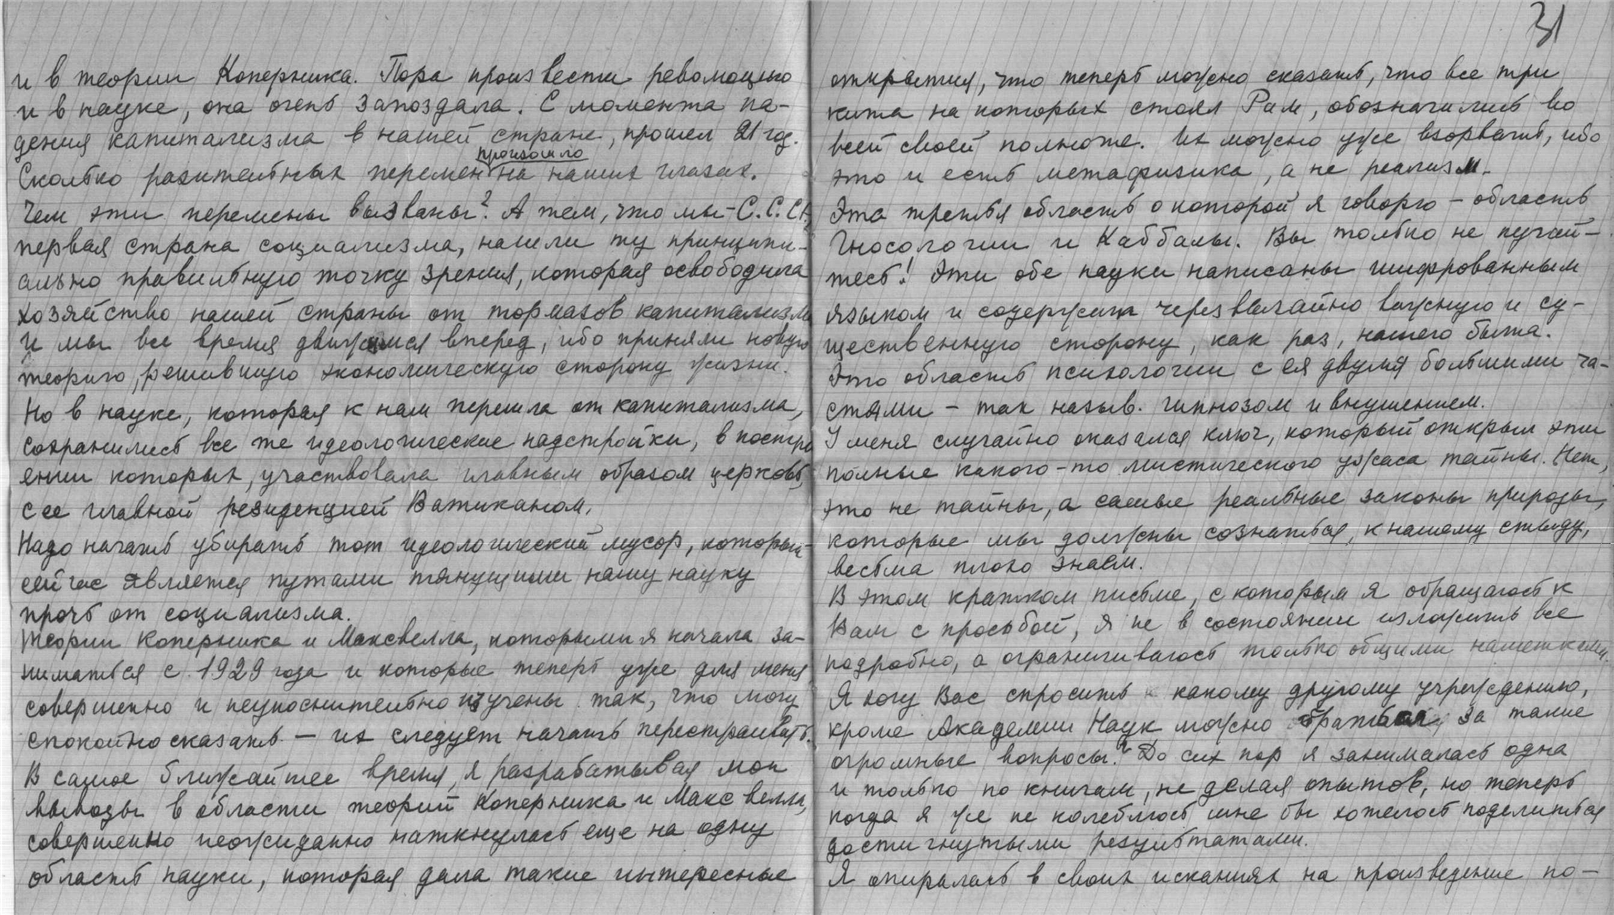 и в теории Коперника. Пора произвести революцию
и в науке, она очень запоздала. С момента па-
дения капитализма в нашей стране, прошел 21 год.
произошло
Сколько разительных перемен на наших глазах.
Чем эти перемены вызваны? А тем, что мы – С.С.С.Р,
первая страна социализма, нашли ту принципи-
ально правильную точку зрения, которая освободила
хозяйство нашей страны от тормазов капитализма
и мы все время движемся вперед, ибо приняли новую
теорию, решившую экономическую сторону жизни.
Но в науке, которая к нам перешла от капитализма,
сохранились все те идеологические надстройки, в постро
ении которых, участвовала главным образом церковь,
с ее главной резиденцией Ватиканом.
Надо начать убирать тот идеологический мусор, который
сейчас является путами тянущими нашу науку
прочь от социализма.
Теории Коперника и Максвелла, которыми я начала за-
ниматься с 1929 года и которые теперь уже для меня
совершенно и неукоснительно изучены так, что могу
спокойно сказать – их следует начать перестраивать.
В самое ближайшее время, я разрабатывая мои
выводы в области теорий Коперника и Максвелла,
совершенно неожиданно наткнулась еще на одну
область науки, которая дала такие интересные
31
открытия, что теперь можно сказать, что все три
кита на которых стоял Рим, обозначились во
всей своей полноте. Их можно уже взорвать, ибо
это и есть метафизика, а не реализм.
Эта третья область о которой я говорю – область
Гносологии и Каббалы. Вы только не пугай-
тесь! Эти обе науки написаны шифрованным
языком и содержат черезвычайно важную и су-
щественную сторону, как раз, нашего быта.
Это область психологии с ея двумя большими ча-
стями – так назыв. гипнозом и внушением.
У меня случайно оказался ключ, который открыл эти
полные какого-то мистического ужаса тайны. Нет,
это не тайны, а самые реальные законы природы,
которые мы должны сознаться, к нашему стыду,
весьма плохо знаем.
В этом кратком письме, с которым я обращаюсь к
Вам с просьбой, я не в состоянии изложить все
подробно, а ограничиваюсь только общими наметками.
Я хочу Вас спросить к какому другому учреждению,
кроме Академии Наук можно браться за такие
огромные вопросы? До сих пор я занималась одна
и только по книгам, не делая опытов, но теперь
когда я уже не колеблюсь мне бы хотелось поделиться
достигнутыми результатами.
Я опиралась в своих исканиях на произведение по-